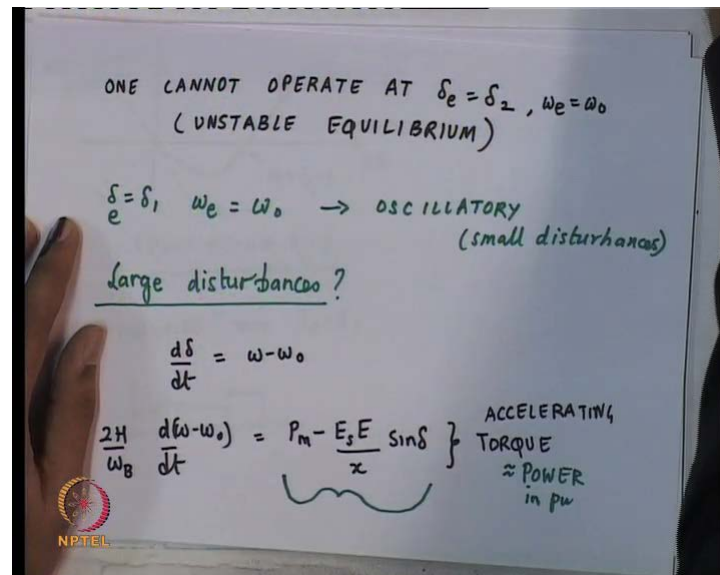 ONE CANNOT OPERATE AT δe = δ2, ωe = ω0
(UNSTABLE EQUILIBRIUM)
δe = δ1 ωe = ω0 → OSCILLATORY
(small disturbances)
Large disturbances?
dδ/dt = ω-ω0
2H/ωB d(ω-ω0)/dt = Pm - EsE/x sinδ } ACCELERATING
TORQUE
≈ POWER
in pu
NPTEL